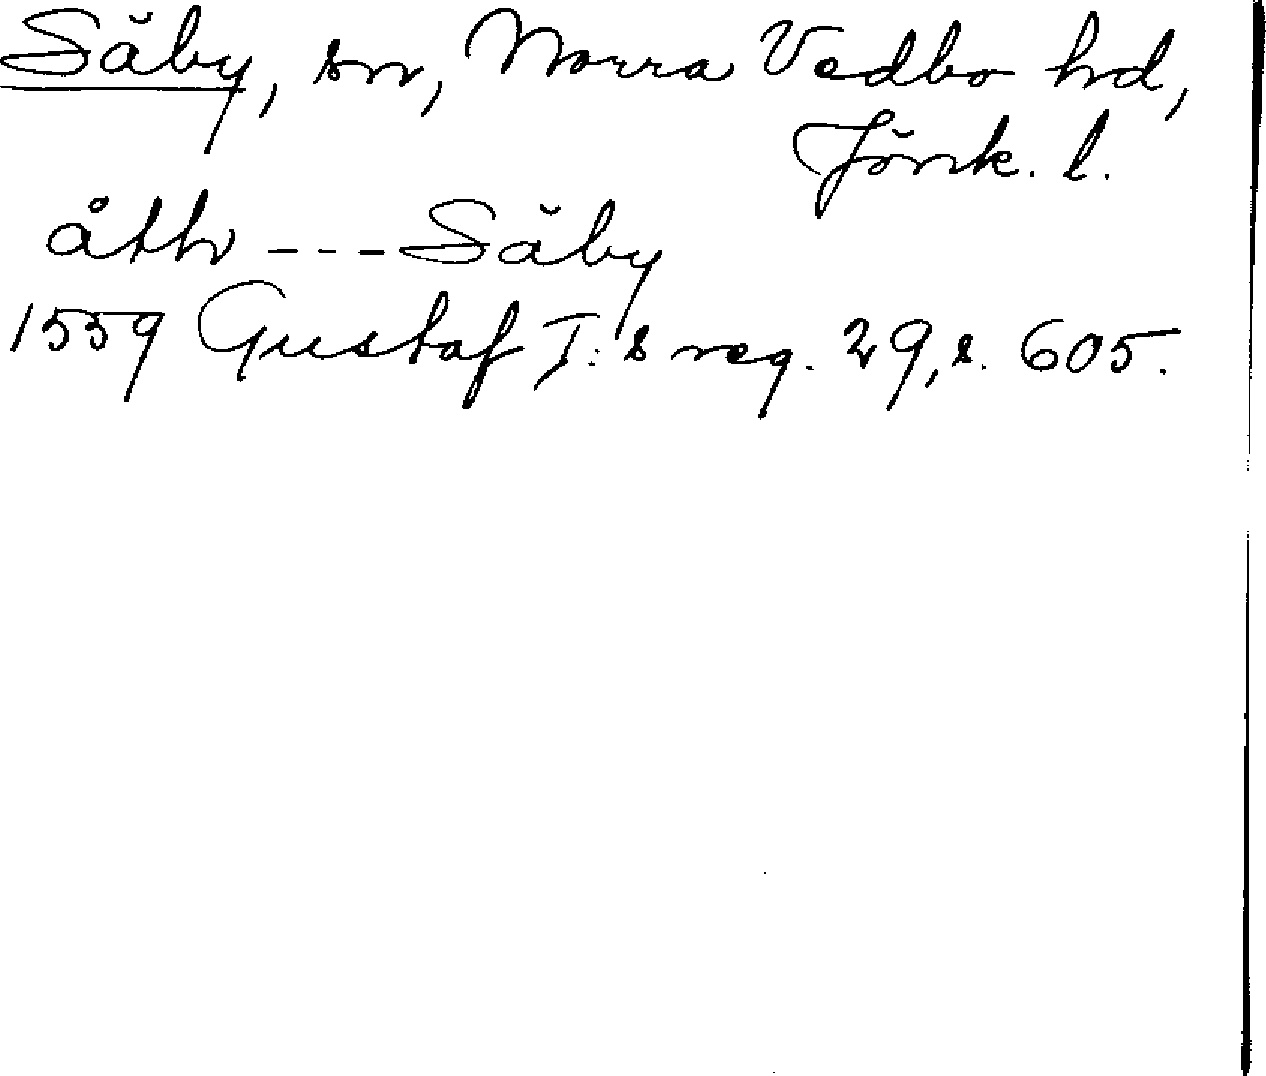 Säby, sn, Norra Vedbo hd,
Jönk. l.
åth --- Säby
1559 Gustaf I:s reg. 29, s. 605.